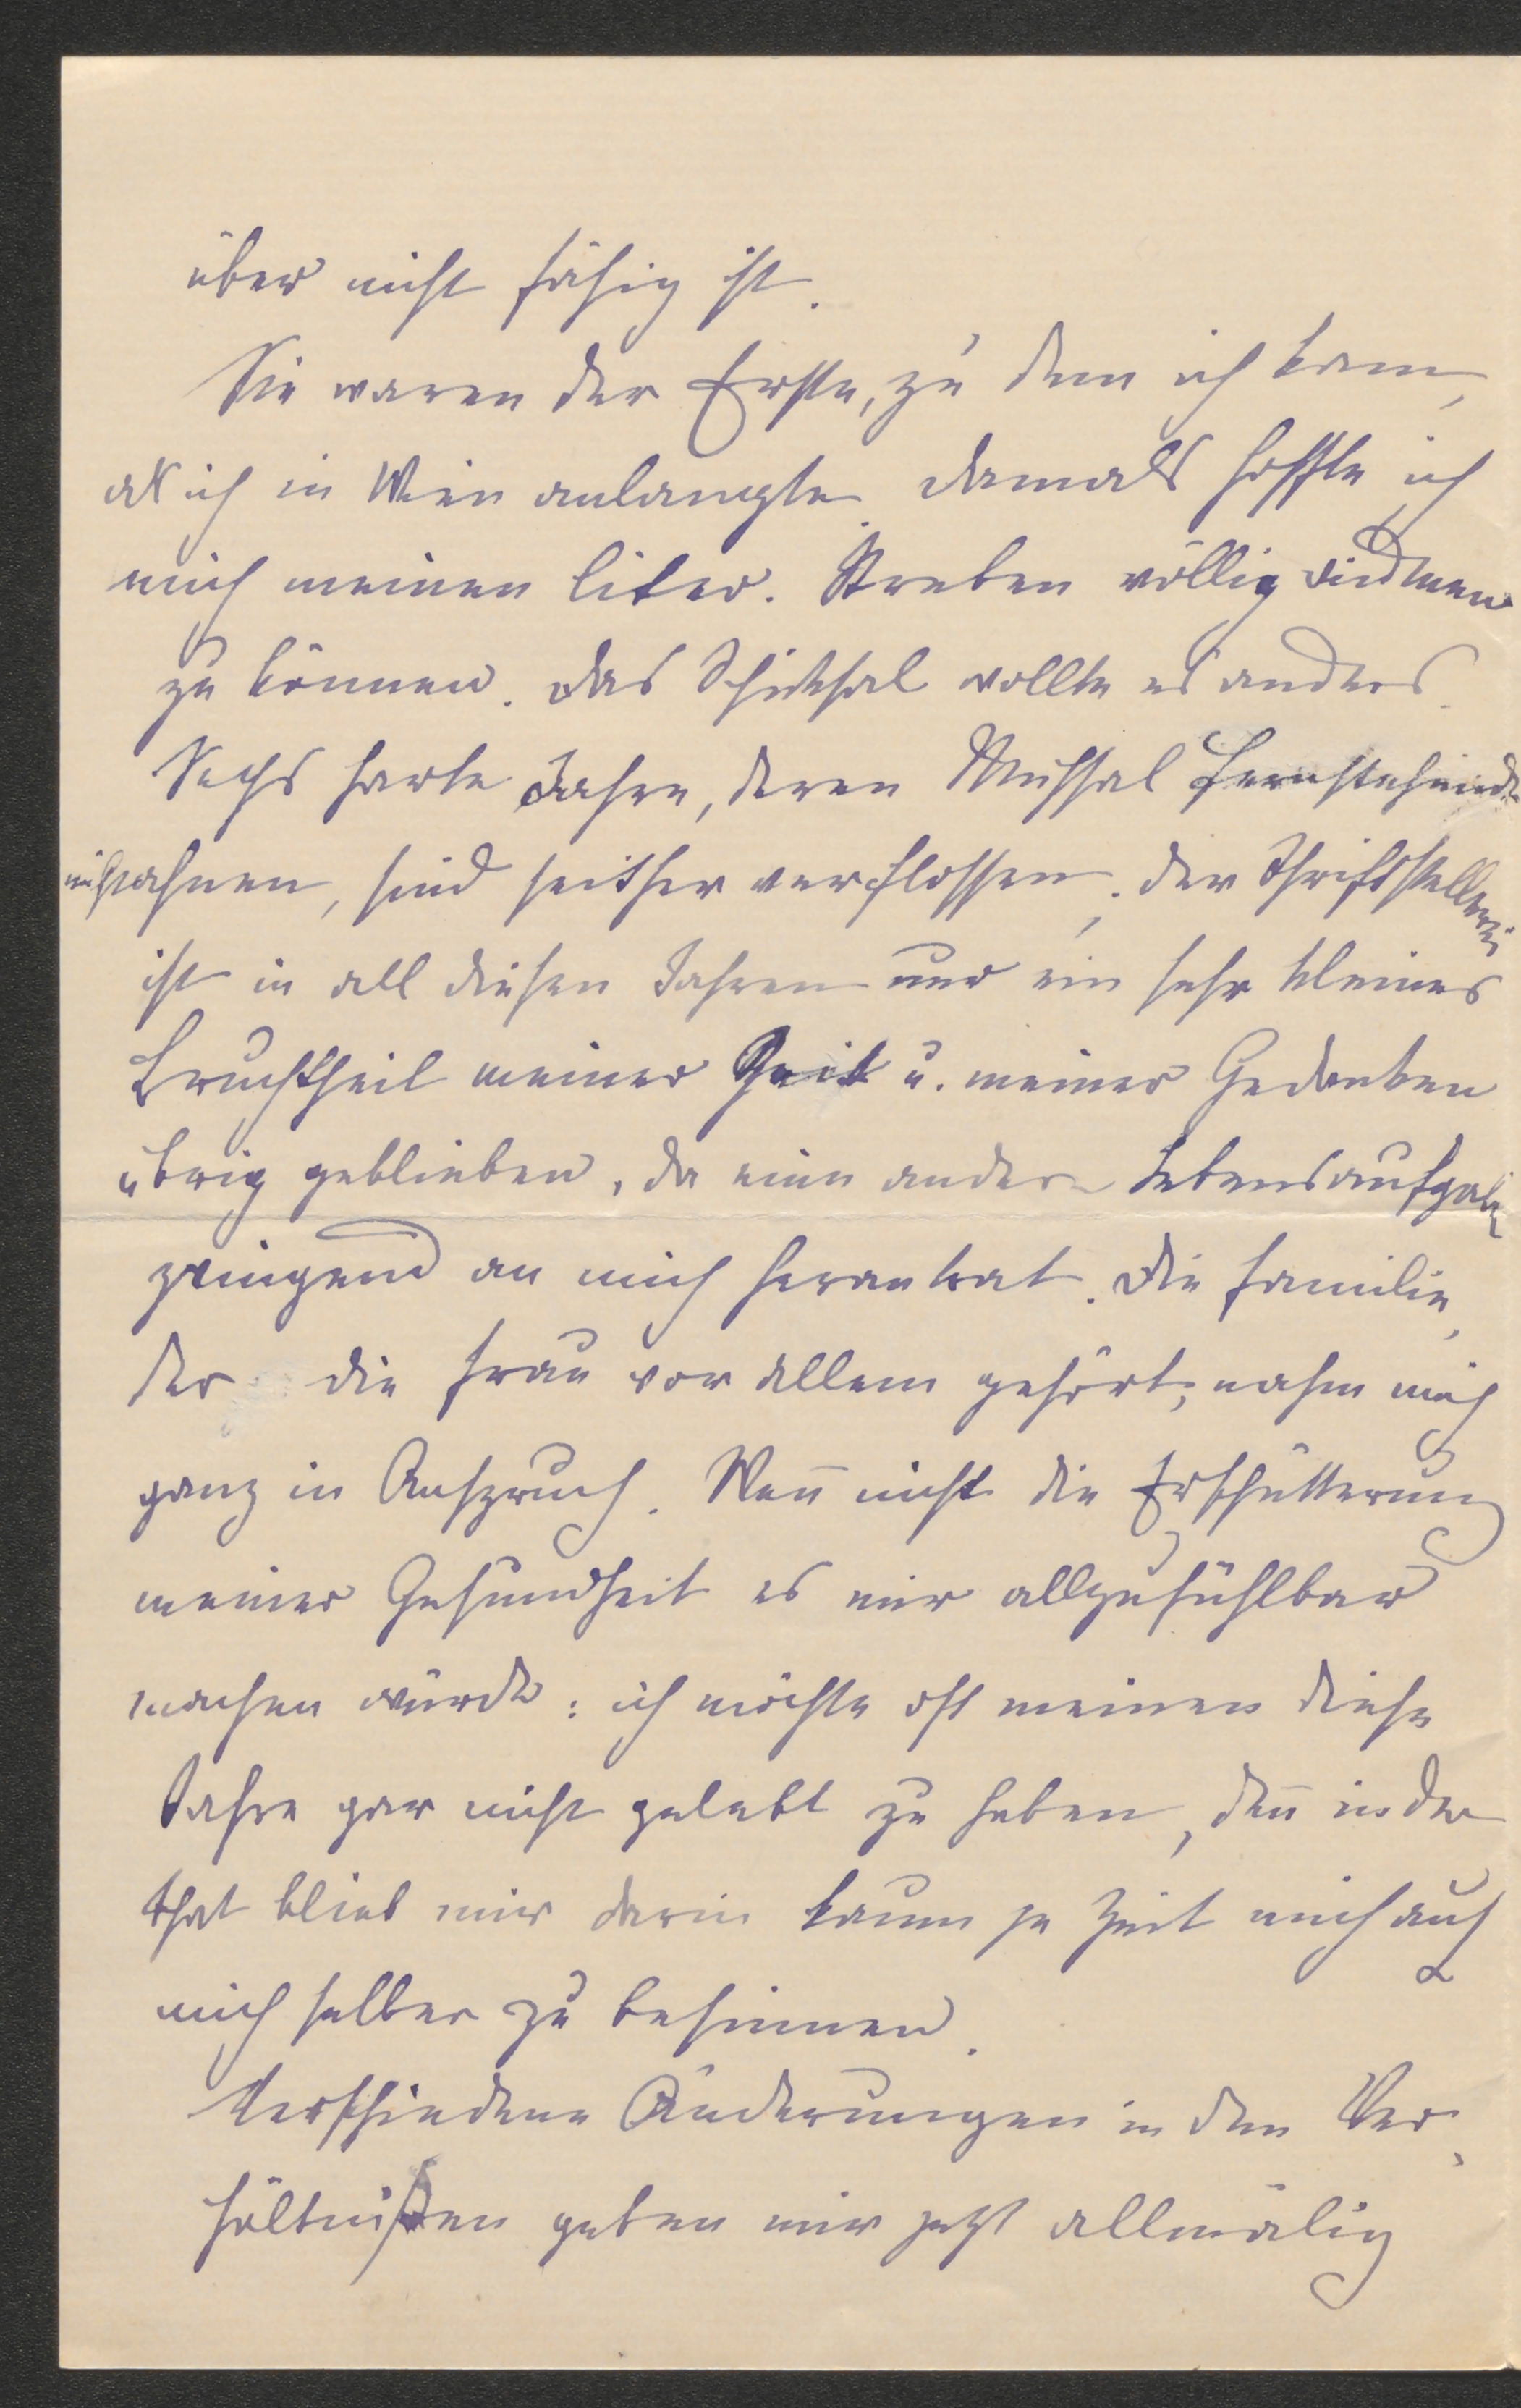 über nicht fähig ist.
Sie waren der Erste, zu dem ich kam,
als ich in Wien anlangte. Damals hoffte ich
mich meinen liter. Streben völlig widmen
zu können. Das Schicksal wollte es anders.
Sechs harte Jahre, deren Mühsal Fernstehende
nicht ahnen, sind seither verflossen; der Schriftstellerei
ist in all diesen Jahren nur ein sehr kleines
Bruchtheil meiner Zeit u. meiner Gedanken
übrig geblieben, da eine andere Lebensaufgabe
zwingend an mich herantrat. Die Familie,
der die Frau vor allem gehört, nahm mich
ganz in Anspruch. Wen̄ nicht die Erschütterung
meiner Gesundheit es mir allzufühlbar
machen würde: ich möchte oft meinen diese
Jahre gar nicht gelebt zu haben, den̄ in der
That blieb mir darin kaum je Zeit mich auf
mich selber zu besinnen.
Verschiedene Änderungen in den Ver-
hältnißen geben mir jetzt allmälig